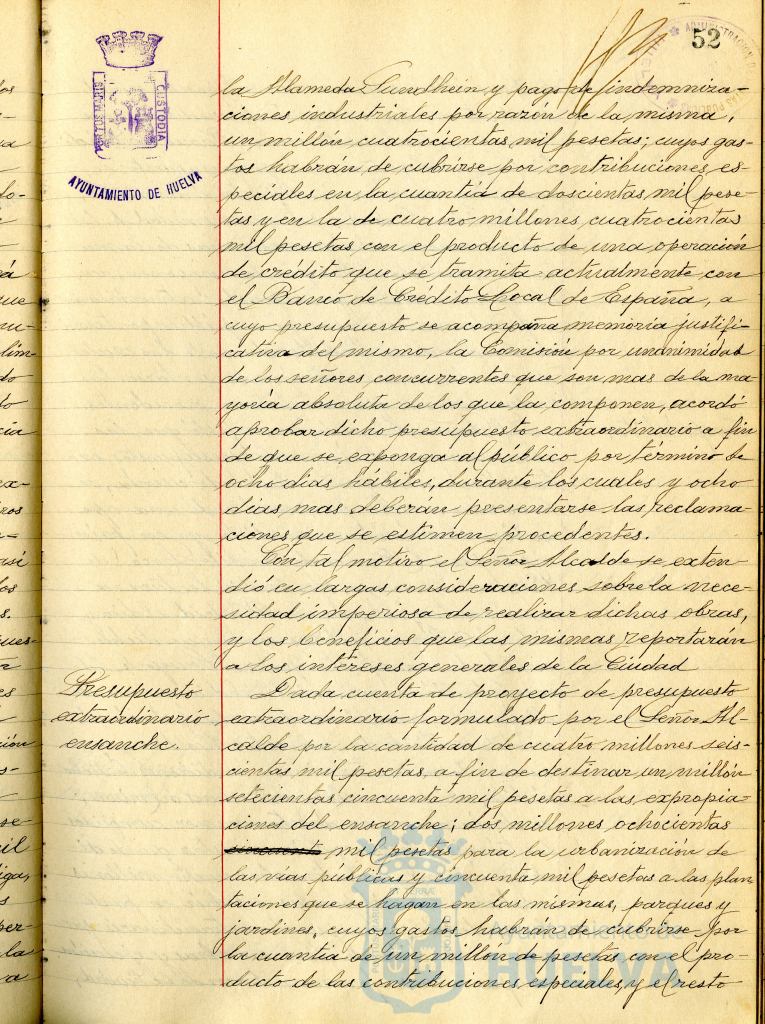 52
PORTUS MARIS
CUSTODIA
AYUNTAMIENTO DE HUELVA
la Alameda Sundhein y pago de indemniza-
ciones industriales por razón de la misma,
un millón cuatrocientas mil pesetas; cuyos gas-
tos habrán de cubrirse por contribuciones es-
peciales en la cuantía de doscientas mil pese-
tas y en la de cuatro millones cuatrocientas
mil pesetas con el producto de una operación
de crédito que se tramita actualmente con
el Banco de Crédito Local de España, a
cuyo presupuesto se acompaña memoria justifi-
cativa del mismo, la Comisión por unanimidad
de los señores concurrentes que son mas de la ma-
yoría absoluta de los que la componen, acordó
aprobar dicho presupuesto extraordinario a fin
de que se exponga al público por término de
ocho días hábiles, durante los cuales y ocho
días mas deberán presentarse las reclama-
ciones que se estimen procedentes.
Con tal motivo el Señor Alcalde se exten-
dió en largas consideraciones sobre la nece-
sidad imperiosa de realizar dichas obras,
y los beneficios que las mismas reportarán
a los intereses generales de la Ciudad
Presupuesto
extraordinario
ensanche.
Dada cuenta de proyecto de presupuesto
extraordinario formulado por el Señor Al-
calde por la cantidad de cuatro millones seis-
cientas mil pesetas, a fin de destinar un millón
setecientas cincuenta mil pesetas a las expropia-
ciones del ensanche; dos millones ochocientas
mil pesetas para la urbanización de
las vias públicas y cincuenta mil pesetas a las plan-
taciones que se hagan en las mismas, parques y
jardines, cuyos gastos habrán de cubrirse por
la cuantía de un millón de pesetas con el pro-
ducto de las contribuciones especiales, y el resto
Ayuntamiento de
HUELVA